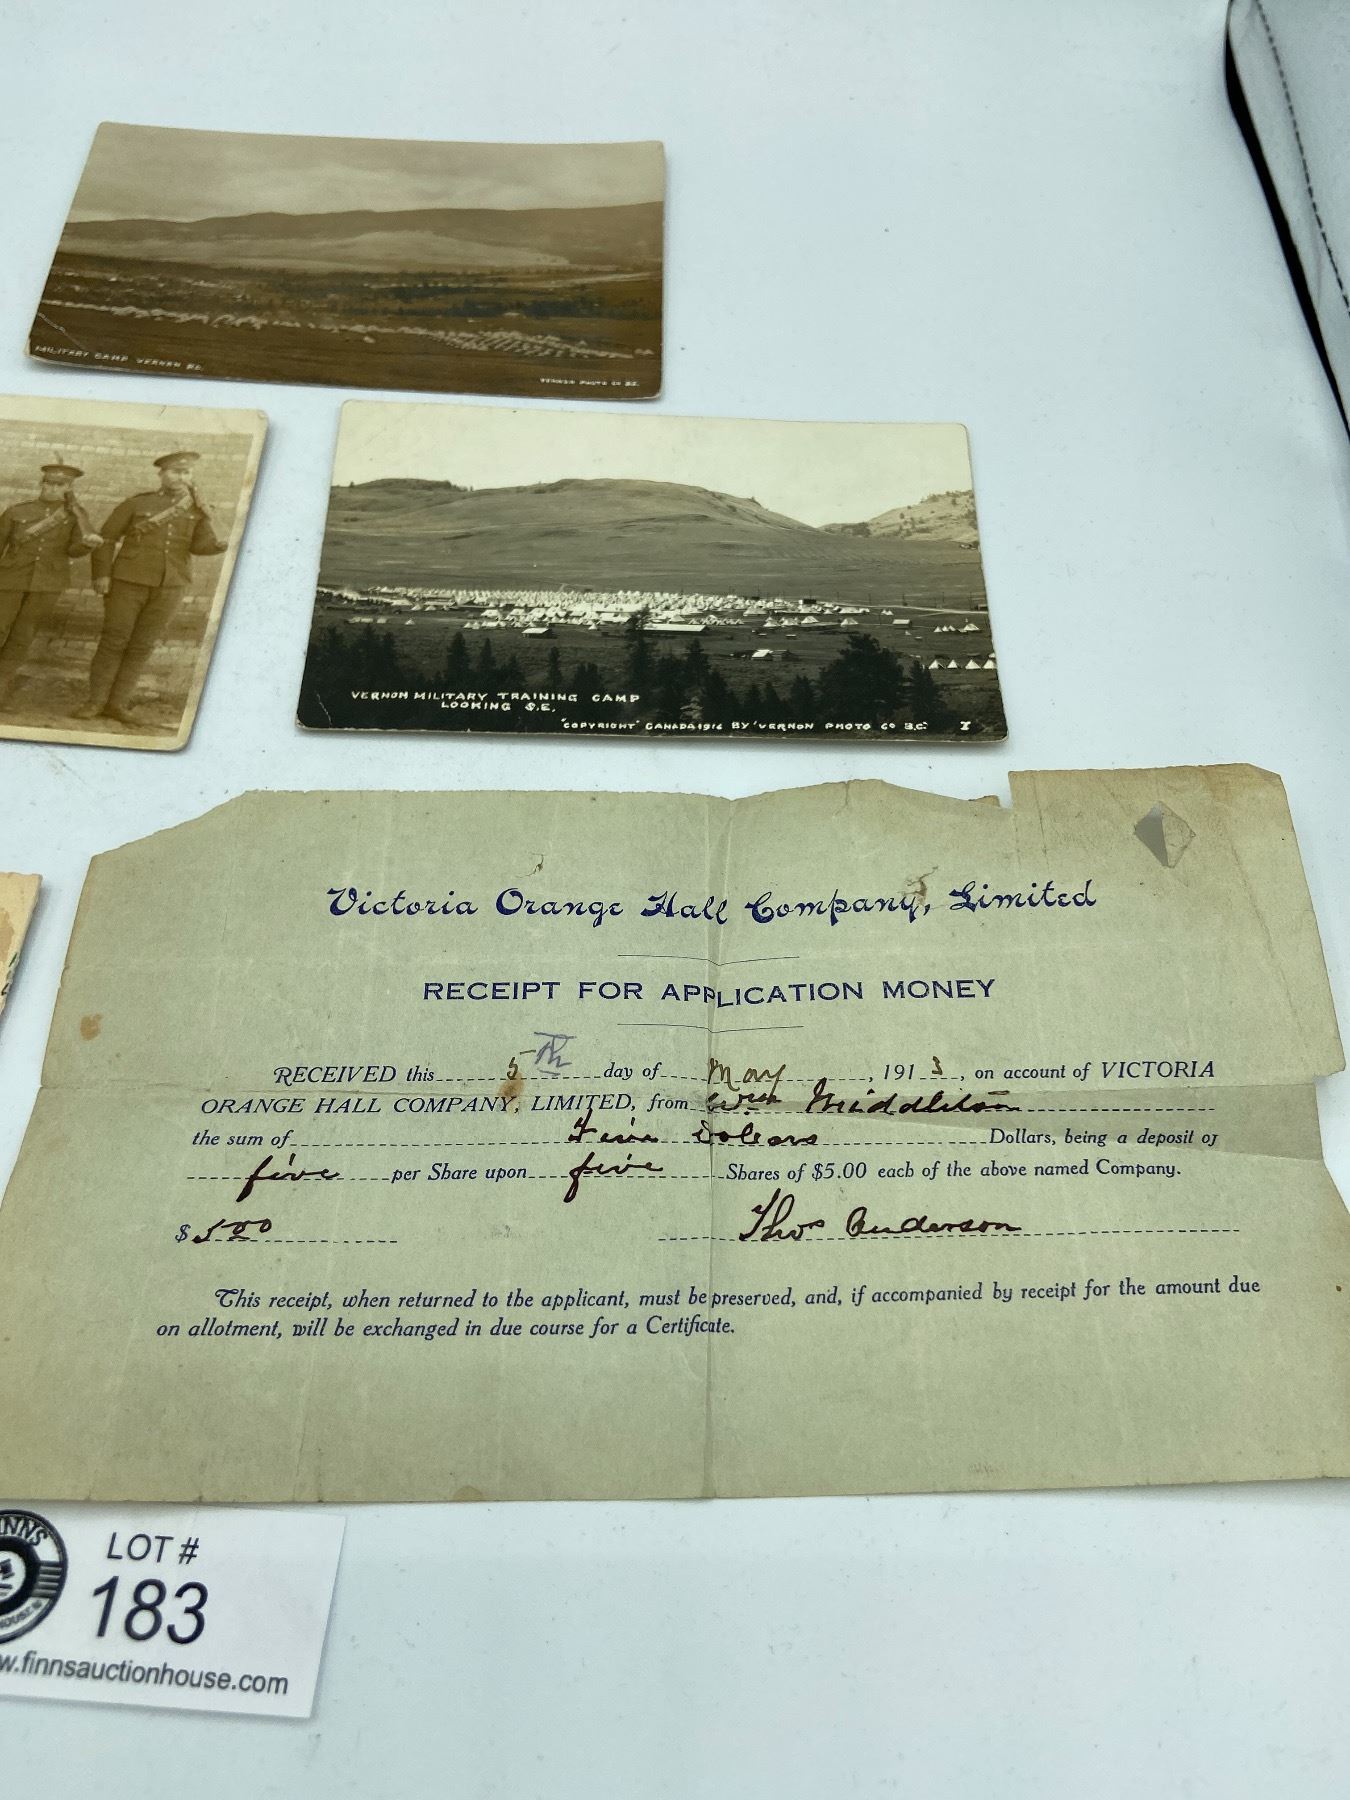 MILITARY CAMP VERNON BC.
VERNON PHOTO CO BC.
VERNON MILITARY TRAINING CAMP
LOOKING S.E.
"COPYRIGHT" CANADA 1916 BY VERNON PHOTO CO B.C. 7
Victoria Orange Hall Company, Limited
RECEIPT FOR APPLICATION MONEY
RECEIVED this 5th day of May, 1913, on account of VICTORIA
ORANGE HALL COMPANY, LIMITED, from Wm Middleton
the sum of Five Dolears Dollars, being a deposit of
five per Share upon five Shares of $5.00 each of the above named Company.
$5.00 Thos Anderson
This receipt, when returned to the applicant, must be preserved, and, if accompanied by receipt for the amount due
on allotment, will be exchanged in due course for a Certificate.
LOT #
183
w.finnsauctionhouse.com